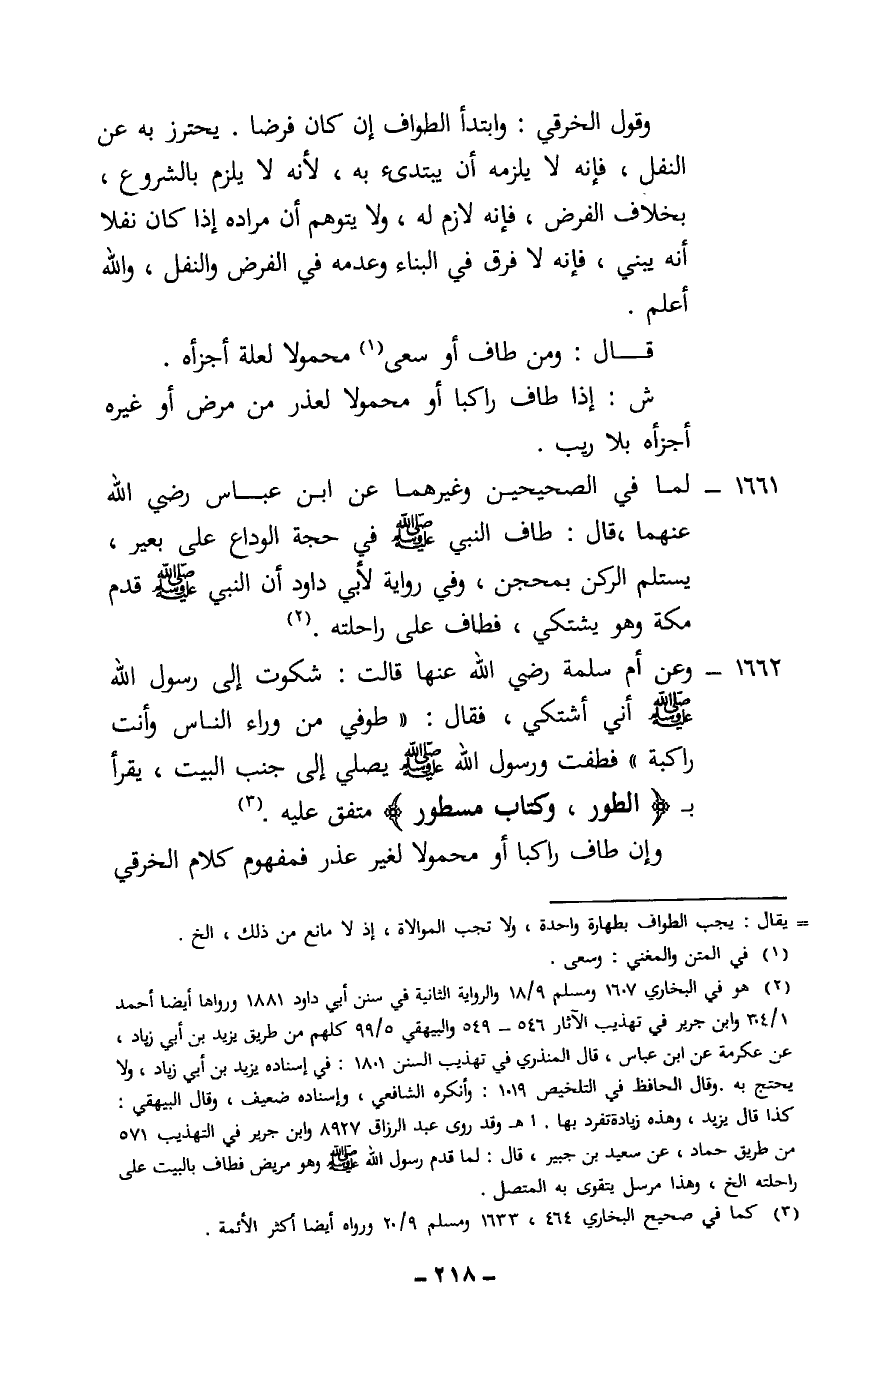 وقول الخرقي : وابتدأ الطواف إن كان فرضا . يحترز به عن
النفل ، فإنه لا يلزمه أن يبتدىء به ، لأنه لا يلزم بالشروع ،
بخلاف الفرض ، فإنه لازم له ، ولا يتوهم أن مراده إذا كان نفلا
أنه يبني ، فإنه لا فرق في البناء وعدمه في الفرض والنفل ، والله
أعلم .
قـــال : ومن طاف أو سعى(١) محمولا لعلة أجزأه .
ش : إذا طاف راكبا أو محمولا لعذر من مرض أو غيره
أجزأه بلا ريب .
١٦٦١ ــ لمـا في الصحيحيـن وغيرهمـا عن ابـن عبـــاس رضي الله
عنهما ،قال : طاف النبي ﷺ في حجة الوداع على بعير ،
يستلم الركن بمحجن ، وفي رواية لأبي داود أن النبي ﷺ قدم
مكة وهو يشتكي ، فطاف على راحلته .(٢)
١٦٦٢ ــ وعن أم سلمة رضي الله عنها قالت : شكوت إلى رسول الله
ﷺ أني أشتكي ، فقال : « طوفي من وراء النـاس وأنت
راكبة » فطفت ورسول الله ﷺ يصلي إلى جنب البيت ، يقرأ
بـ ﴿ الطور ، وكتاب مسطور ﴾ متفق عليه .(٣)
وإن طاف راكبا أو محمولا لغير عذر فمفهوم كلام الخرقي
= يقال : يجب الطواف بطهارة واحدة ، ولا تجب الموالاة ، إذ لا مانع من ذلك ، الخ .
(١) في المتن والمغني : وسعى .
(٢) هو في البخاري ١٦٠٧ ومسلم ١٨/٩ والرواية الثانية في سنن أبي داود ١٨٨١ ورواها أيضا أحمد
٣٠٤/١ وابن جرير في تهذيب الآثار ٥٤٦ ــ ٥٤٩ والبيهقي ٩٩/٥ كلهم من طريق يزيد بن أبي زياد ،
عن عكرمة عن ابن عباس ، قال المنذري في تهذيب السنن ١٨٠١ : في إسناده يزيد بن أبي زياد ، ولا
يحتج به .وقال الحافظ في التلخيص ١٠١٩ : وأنكره الشافعي ، وإسناده ضعيف ، وقال البيهقي :
كذا قال يزيد ، وهذه زيادةتفرد بها . ا هـ وقد روى عبد الرزاق ٨٩٢٧ وابن جرير في التهذيب ٥٧١
من طريق حماد ، عن سعيد بن جبير ، قال : لما قدم رسول الله ﷺ وهو مريض فطاف بالبيت على
راحلته الخ ، وهذا مرسل يتقوى به المتصل .
(٣) كما في صحيح البخاري ٤٦٤ ، ١٦٣٣ ومسلم ٢٠/٩ ورواه أيضا أكثر الأئمة .
ــ ٢١٨ ــ